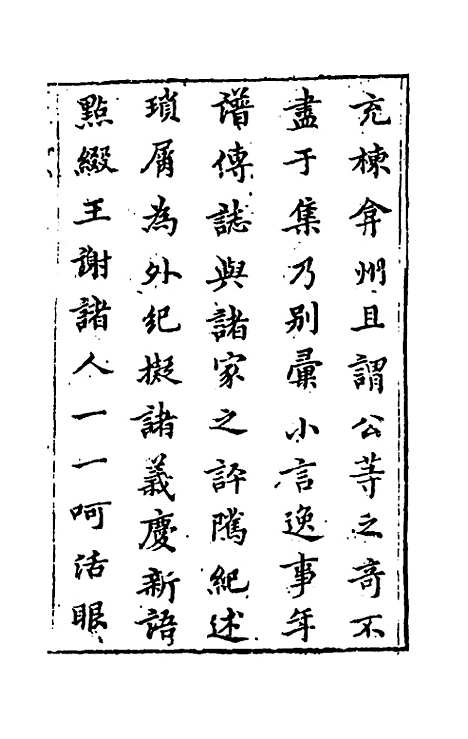 充棟弇州且謂公等之奇不
盡于集乃別彙小言逸事年
譜傳誌與諸家之評隲紀述
瑣屑為外紀擬諸義慶新語
點綴王謝諸人一一呵活眼